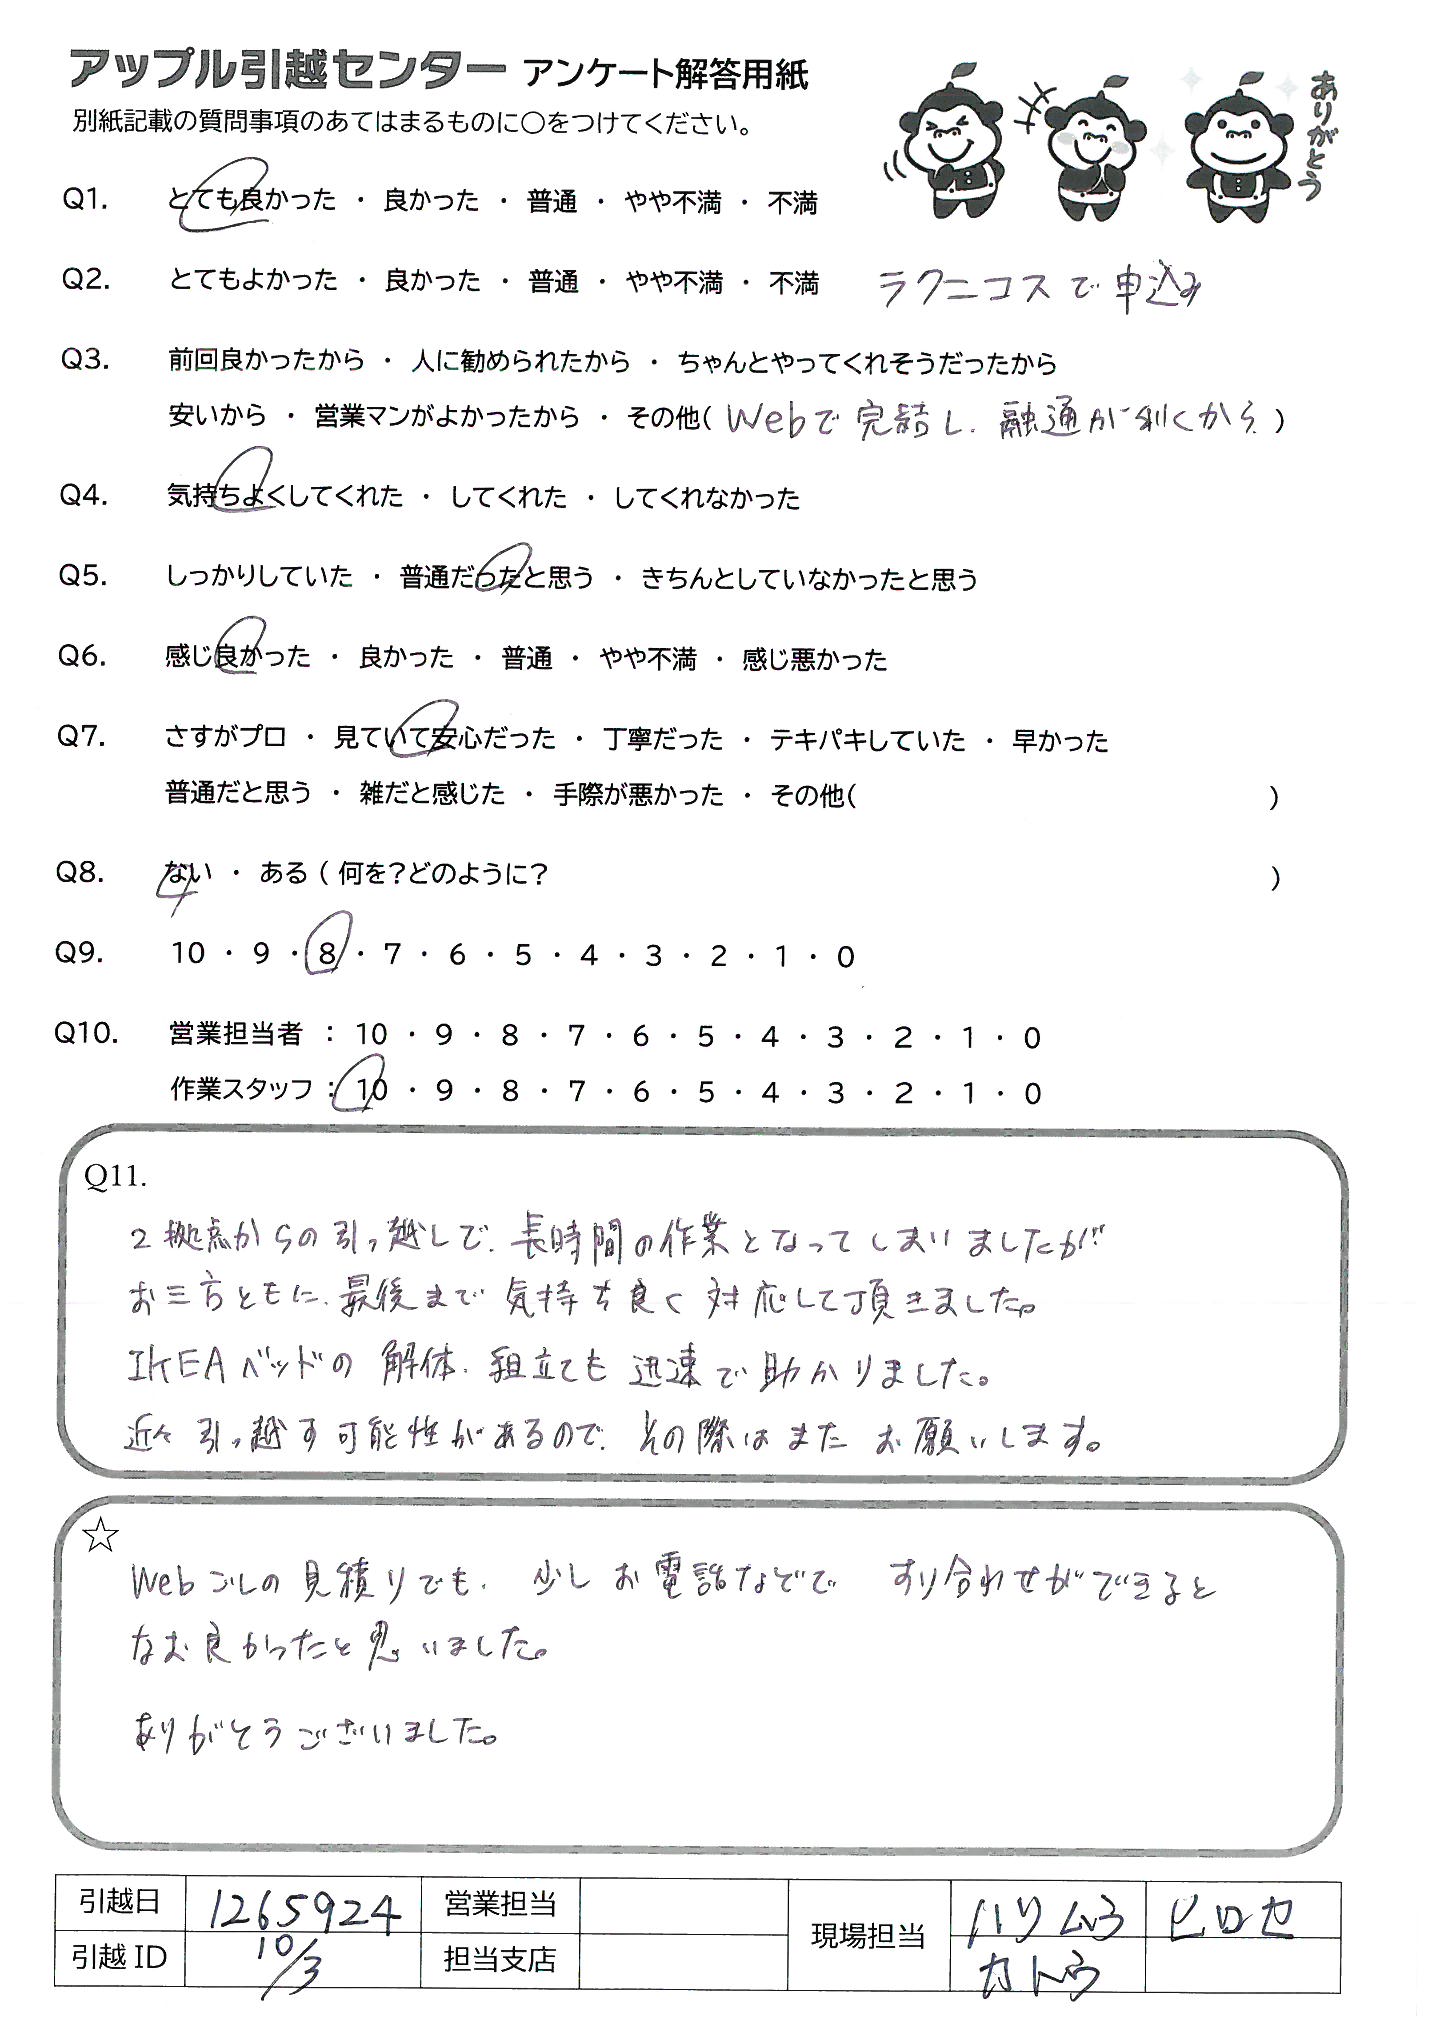 アップル引越センター アンケート解答用紙
別紙記載の質問事項のあてはまるものに○をつけてください。
ありがとう
Q1. とても良かった ・ 良かった ・ 普通 ・ やや不満 ・ 不満
Q2. とてもよかった ・ 良かった ・ 普通 ・ やや不満 ・ 不満 ラクニコスで申込み
Q3. 前回良かったから ・ 人に勧められたから ・ ちゃんとやってくれそうだったから
安いから ・ 営業マンがよかったから ・ その他( Webで完結し、融通が利くから )
Q4. 気持ちよくしてくれた ・ してくれた ・ してくれなかった
Q5. しっかりしていた ・ 普通だったと思う ・ きちんとしていなかったと思う
Q6. 感じ良かった ・ 良かった ・ 普通 ・ やや不満 ・ 感じ悪かった
Q7. さすがプロ ・ 見ていて安心だった ・ 丁寧だった ・ テキパキしていた ・ 早かった
普通だと思う ・ 雑だと感じた ・ 手際が悪かった ・ その他( )
Q8. ない ・ ある ( 何を?どのように? )
Q9. 10 ・ 9 ・ 8 ・ 7 ・ 6 ・ 5 ・ 4 ・ 3 ・ 2 ・ 1 ・ 0
Q10. 営業担当者 : 10 ・ 9 ・ 8 ・ 7 ・ 6 ・ 5 ・ 4 ・ 3 ・ 2 ・ 1 ・ 0
作業スタッフ : 10 ・ 9 ・ 8 ・ 7 ・ 6 ・ 5 ・ 4 ・ 3 ・ 2 ・ 1 ・ 0
Q11.
2拠点からの引っ越しで、長時間の作業となってしまいましたが
お三方ともに、最後まで気持ち良く対応して頂きました。
IKEAベッドの解体、組立ても迅速で助かりました。
近々引っ越す可能性があるので、その際はまたお願いします。
☆
Webごしの見積りでも、少しお電話などで すり合わせができると
なお良かったと思いました。
ありがとうございました。
引越日 1265924 営業担当 現場担当 ハリムラ ヒロセ
引越ID 10/3 担当支店 カトウ